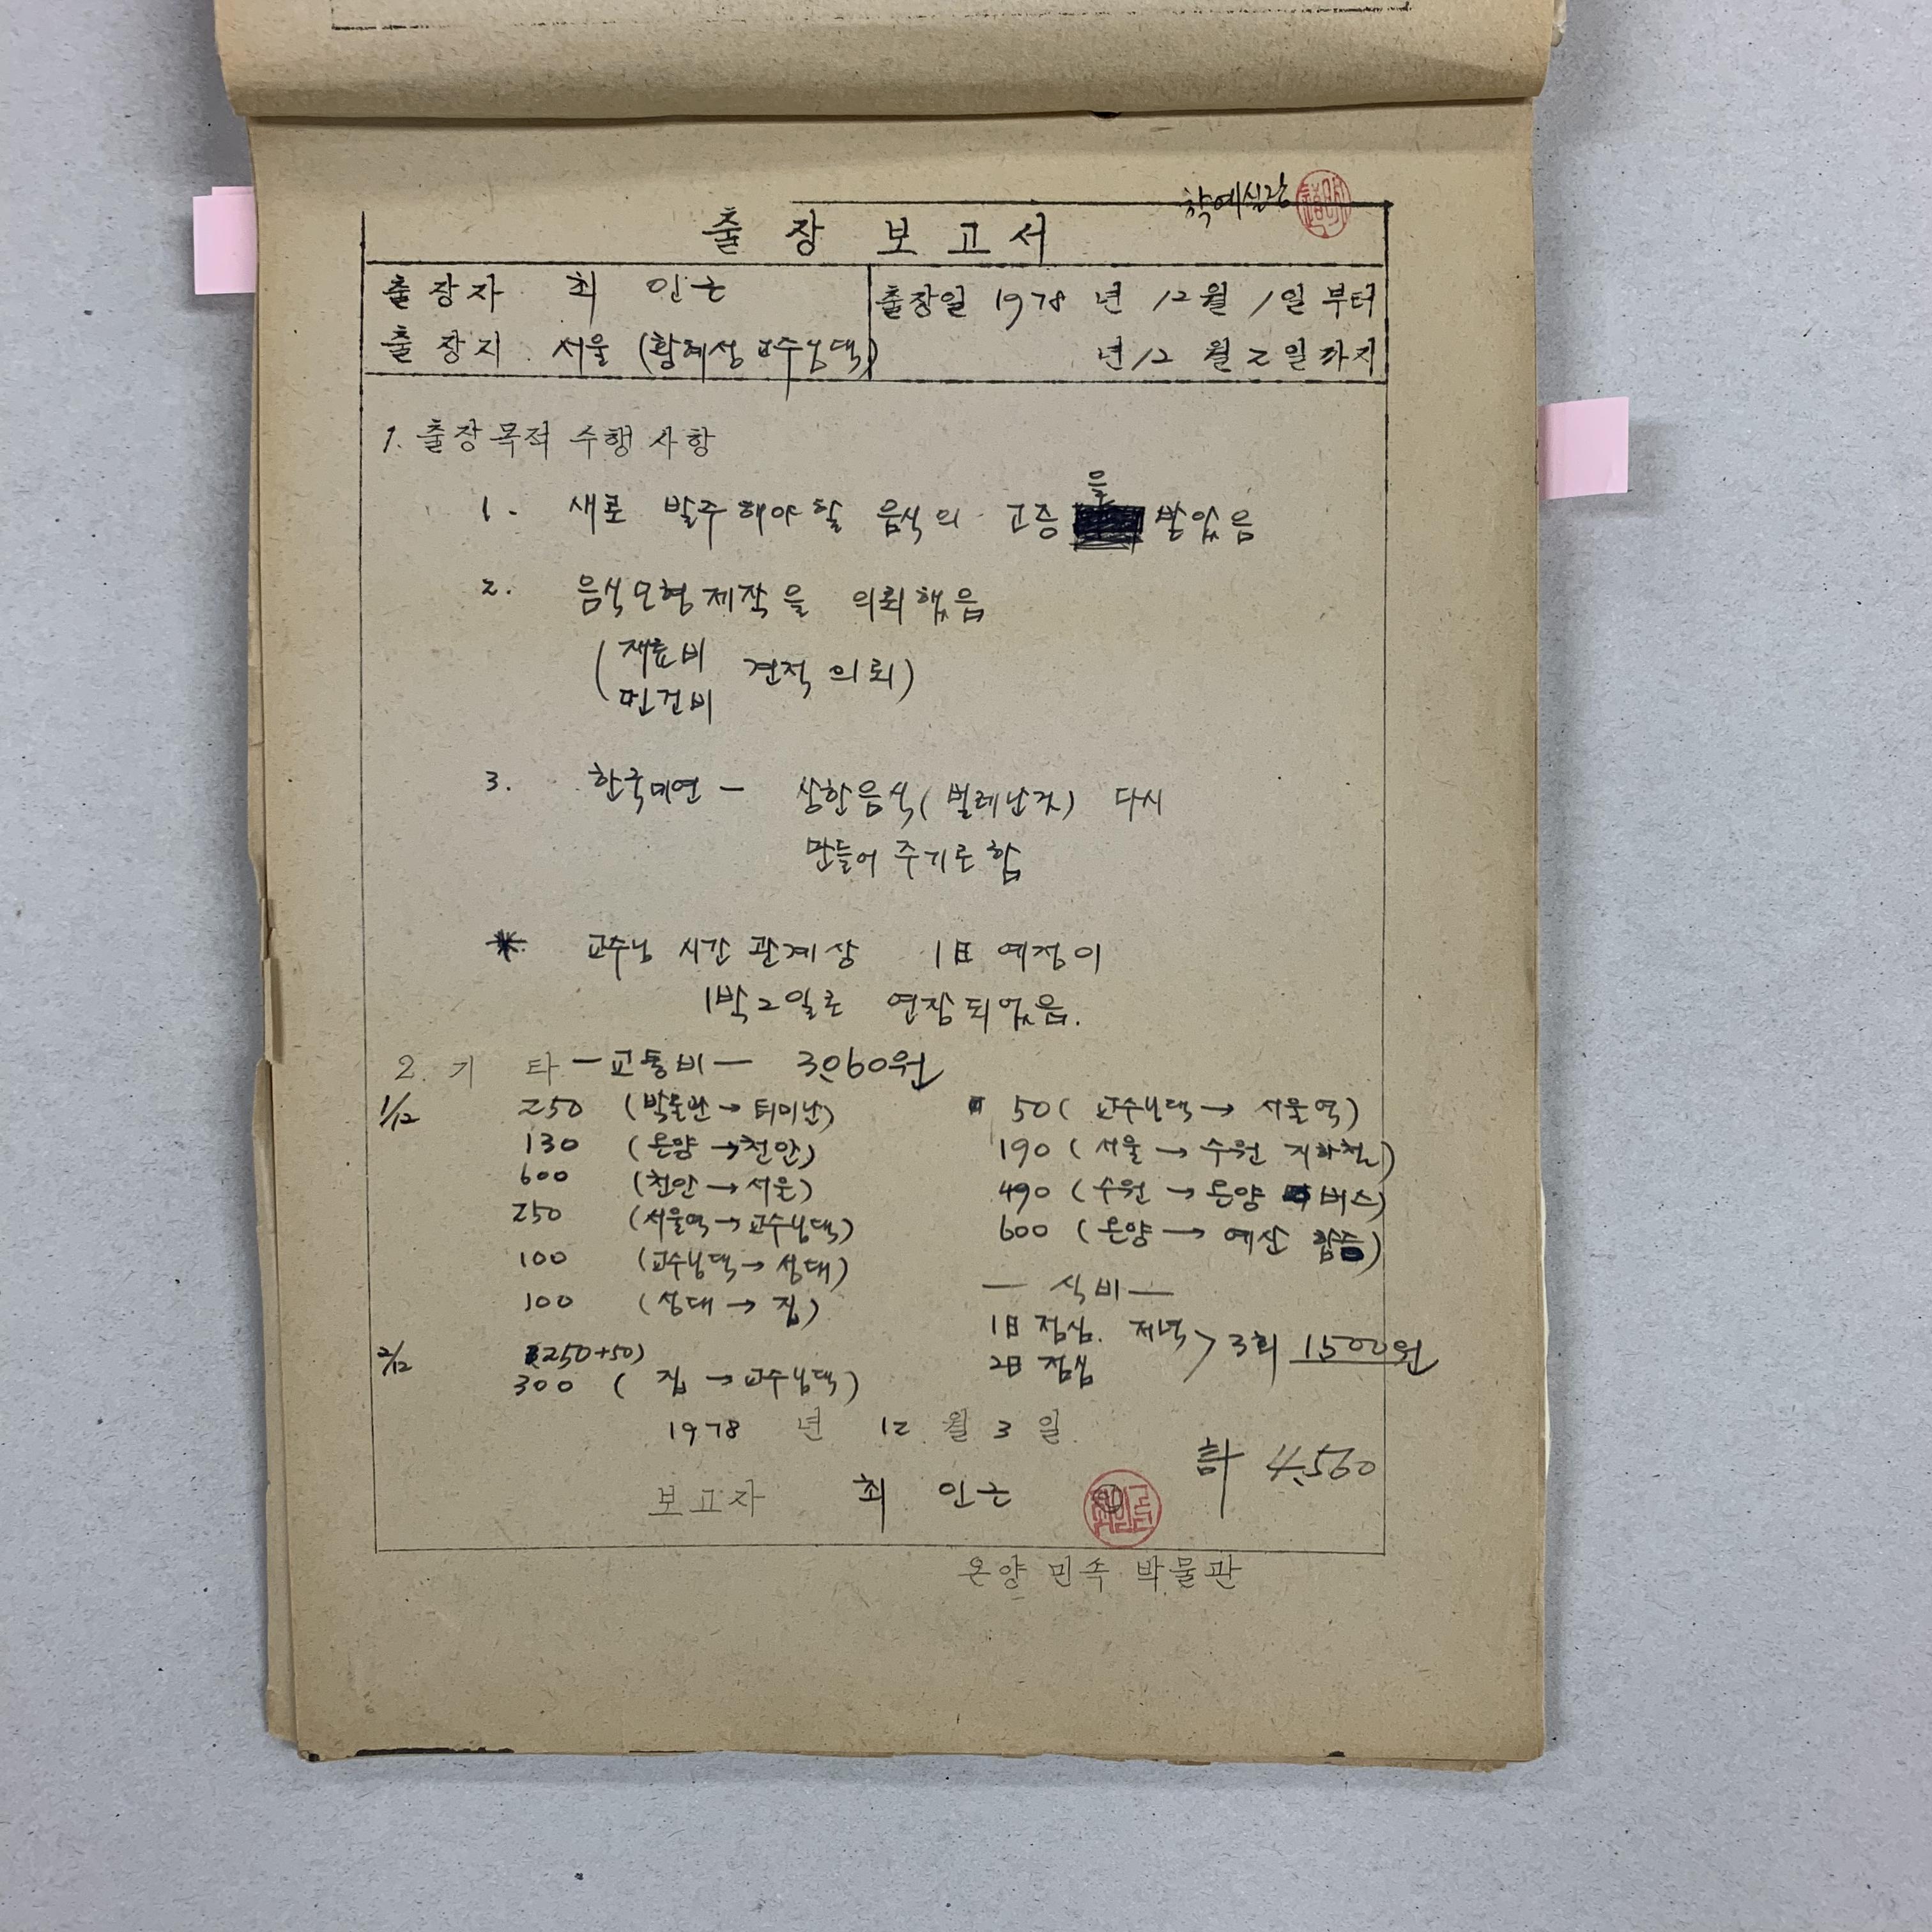 학예실장
출장보고서
출장자 최인근
출장일 1978년 12월 1일부터
출장지 서울 (황혜성 교수님댁)
년 12월 2일까지
1. 출장목적 수행 사항
1. 새로 발주해야 할 음식의 고증을 받았음
2. 음식모형제작을 의뢰했음
(재료비
인건비 견적 의뢰)
3. 한국미연 - 상한음식(벌레난것) 다시
만들어 주기로 함
* 교수님 시간 관계상 1日 예정이
1박2일로 연장되었음.
2. 기타 - 교통비 - 3,060원
1/12 250 (박물관→터미난)
130 (온양→천안)
600 (천안→서울)
250 (서울역→교수님댁)
100 (교수님댁→성대)
100 (성대→집)
2/12 (250+50)
300 (집→교수님댁)
50 (교수님댁→서울역)
190 (서울→수원 지하철)
490 (수원→온양 버스)
600 (온양→예산 합승)
- 식비 -
1日 점심. 저녁 > 3회 1500원
2日 점심
1978년 12월 3일
計 4,560
보고자 최인근
온양민속박물관